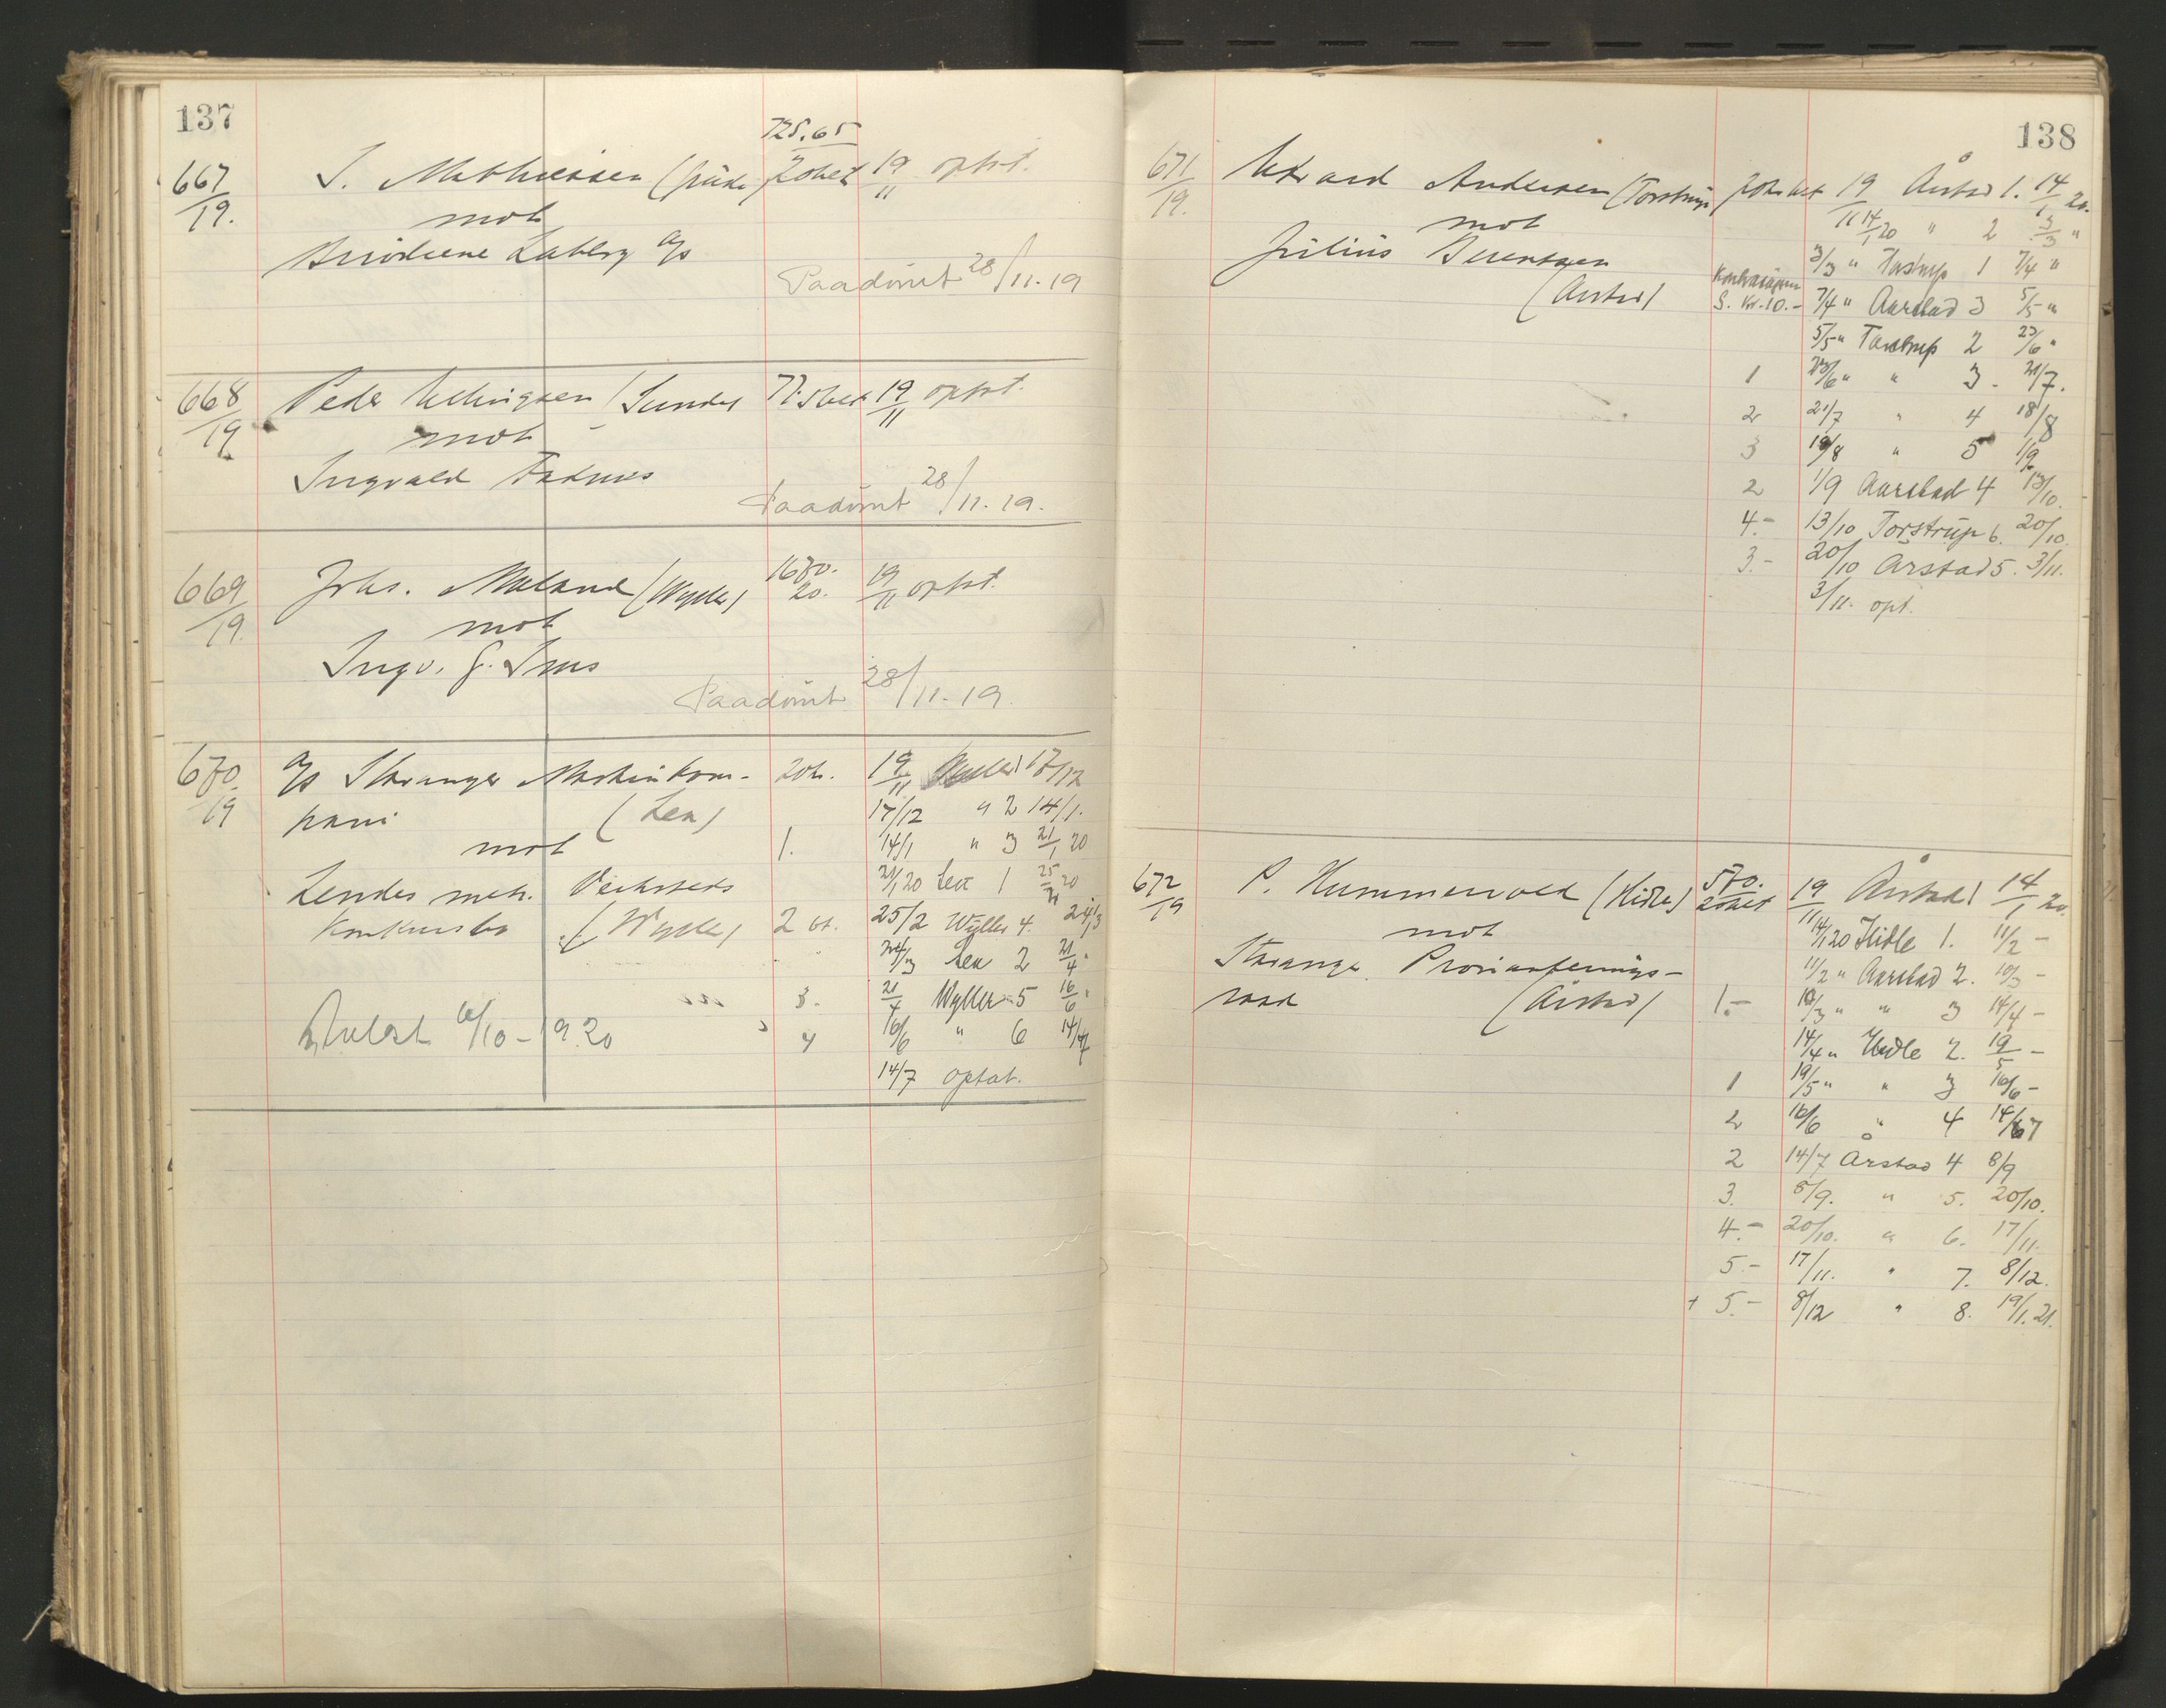 137
725.65
667/19. S. Mathiesen 20 bet 19/11 opt.
mot
Brødrene a/s
Paadømt 28/11.19
668/19. Peder (Sunde) 19/11 opt.
mot
Ingvald
Paadømt 28/11.19.
669/19. Johs. (Wyller) 20. 19/11 opt.
mot
Ingv.
Paadømt 28/11.19.
670/19 a/s Stavanger Maskinkom- 20 k. 19/11 Wyller 1 17/12
pani (Lea) 17/12 " 2 14/1.
mot 1. 14/1 " 3 21/1 20
Lendes mek. Verksteds 21/1 20 Lea 1 25/2 20
Konkursbo (Wyller) 2 bt. 25/2 Wyller 4. 24/3
24/3 Lea 2 21/4 "
3. 21/4 Wyller 5 16/6 "
/10-1920 4 16/6 " 6 14/7
14/7 optat.
138
671/19. Andersen (Torstrup) 19/11 Årstad 1. 14/1 20.
mot 14/1 20 " 2 3/3 "
Julius Berentsen 3/3 " Torstrup 1 7/4 "
(Årstad) S. kr. 10.- 7/4 " Aarstad 3 5/5 "
5/5 " Torstrup 2 23/6 "
1 23/6 " " 3. 21/7.
2 21/7 " 4 18/8
3 18/8 " 5 1/9
2 1/9 Aarstad 4 13/10.
4.- 13/10 Torstrup 6. 20/10.
3.- 20/10 Årstad 5. 3/11.
3/11. opt.
672/19 P. Hummervold (Hidle) 570. 20 bet 19/11 Årstad 1 14/1 20.
mot 14/1 20 Hidle 1. 11/2 -
Stavanger Provianterings- 11/2 " Aarstad 2. 10/3 -
raad (Årstad) 1.- 10/3 " " 3 14/4 -
14/4 " Hidle 2. 19/5 -
1 19/5 " " 3 16/6 -
2 16/6 " 4 14/7
2 14/7 Årstad 4 8/9
3. 8/9. " 5. 20/10.
4.- 20/10. " 6. 17/11.
5.- 17/11. " 7. 8/12.
+ 5.- 8/12 " 8. 19/1.21.